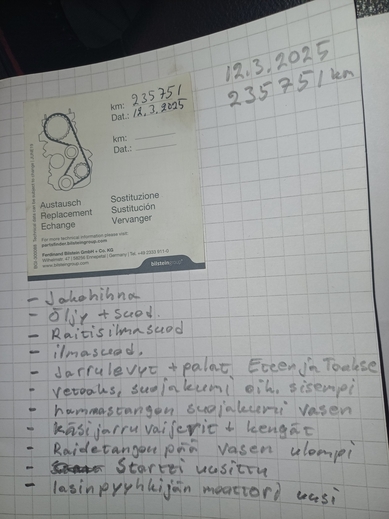 12.3.2025
235751 km
km: 235751
Dat.: 12.3.2025
km:
Dat.:
Austausch
Replacement
Echange
Sostituzione
Sustitución
Vervanger
For more technical information please visit:
partsfinder.bilsteingroup.com
Ferdinand Bilstein GmbH + Co. KG
Wilhelmstr. 47 | 58256 Ennepetal | Germany | Tel. +49 2333 911-0
www.bilsteingroup.com
bilsteingroup
- Jakohihna
- Öljy + suod.
- Raitisilmasuod
- ilmasuod.
- Jarrulevyt + palat, Eteen ja Taakse
- vetoaks. suojakumi oik. sisempi
- hammastangon suojakumi vasen
- Käsijarru vaijerit + kengät
- Raidetangon pää vasen ulompi
- Startti uusittu
- lasinpyyhkijän moottori uusi